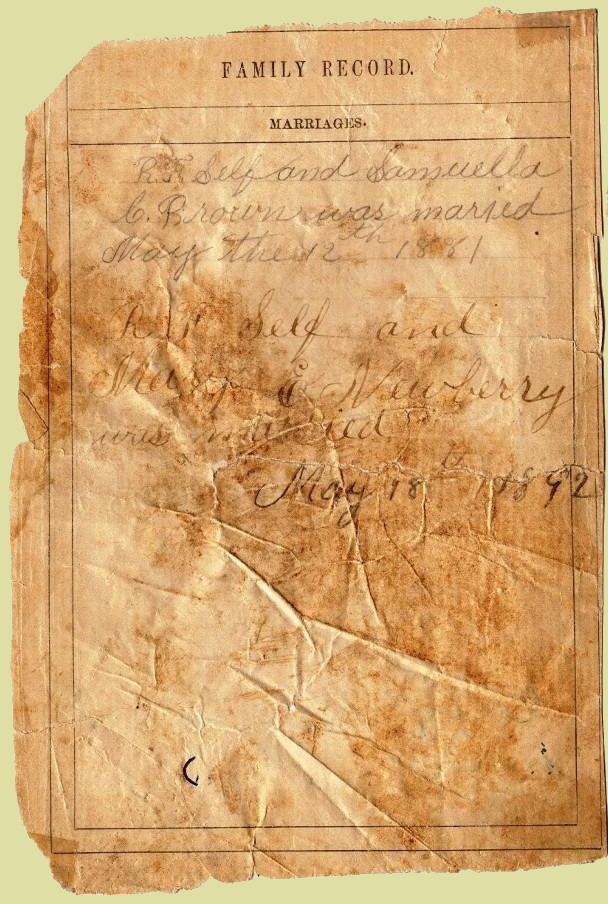 FAMILY RECORD.
MARRIAGES.
R.F. Self and Samuella
C. Brown was maried
May the 12th 1881
R.F. Self and
Mary E Newberry
was married
May 18th 1892